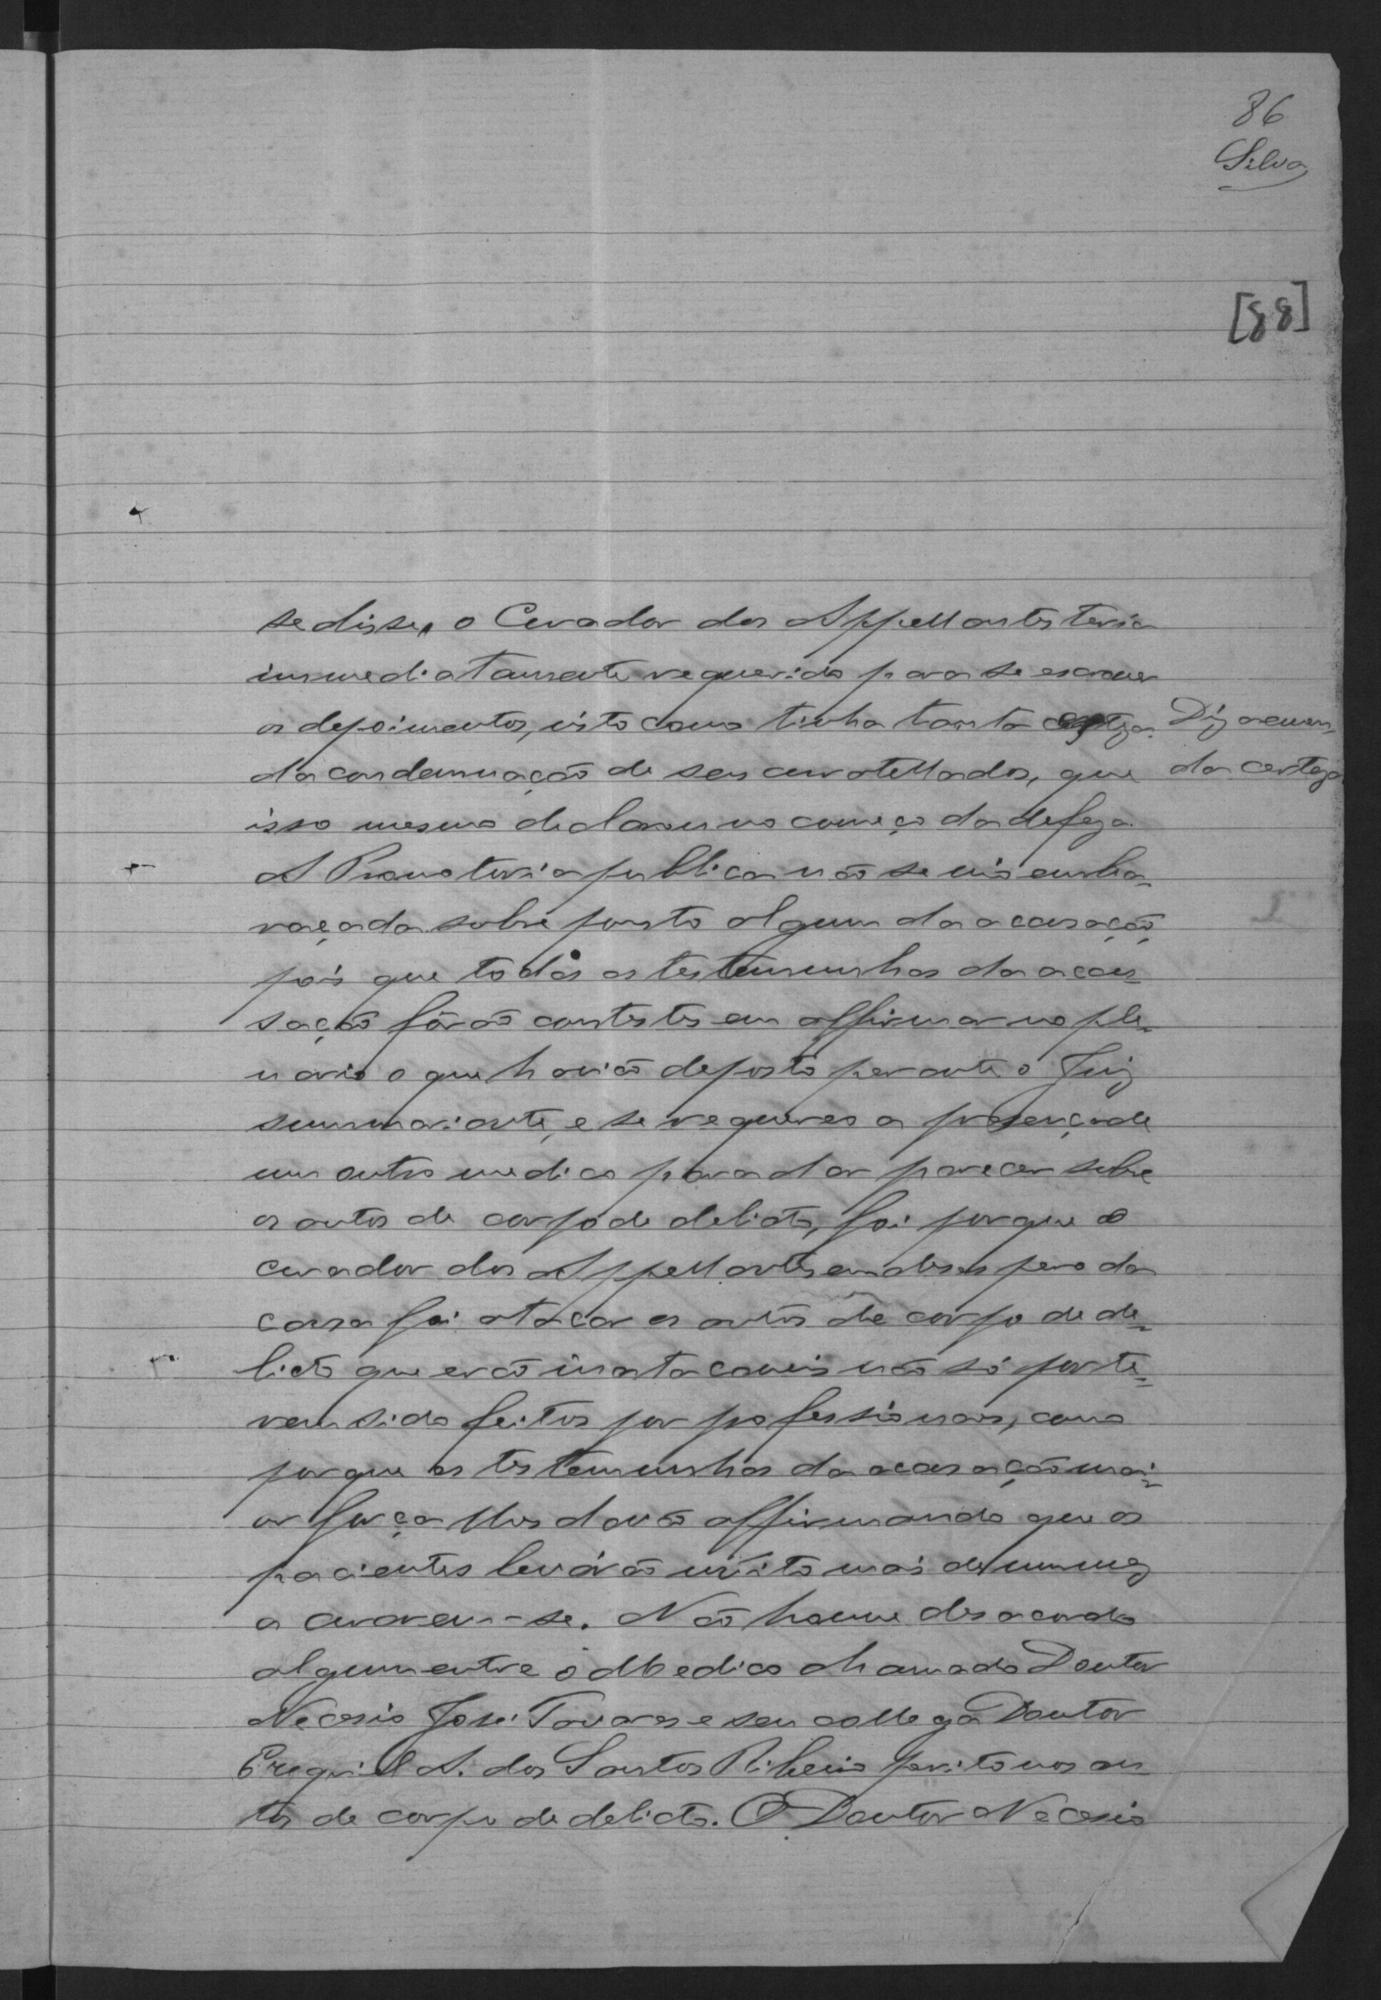 86
Silva
[88]
se disse, o Curador dos Appellantes teria
immediatamente requerido para se escrever
os depoimentos, visto como tinha tanta certeza
Diz a emen-
da certeza
da condemnação de seus curatellados, que
isso mesmo declarou no começo da defeza.
A Promotoria publica não se vio emba-
raçada sobre ponto algum da accusação,
pois que todas as testemunhas da accu-
sação fôrão contestes em affirmar no ple-
nario o que havião deposto perante o Juiz
summariante, e se requereo a presença de
um outro medico para dar parecer sobre
os autos de corpo de delicto, foi porque o
curador dos Appellantes em desespero da
causa foi atacar os autos de corpo de de-
licto que erão inatacaveis não só por te-
rem sido feitos por professionaes, como
porque as testemunhas da accusação mai-
or força lhes davão affirmando que os
pacientes levárão muito mais de um mez
a curarem-se. Não houve desacordo
algum entre o Medico chamado Doutor
Necesio José Tavares e seu collega Doutor
Ezequiel A. dos Santos Ribeiro perito nos au-
tos de corpo de delicto. O Doutor Necesio